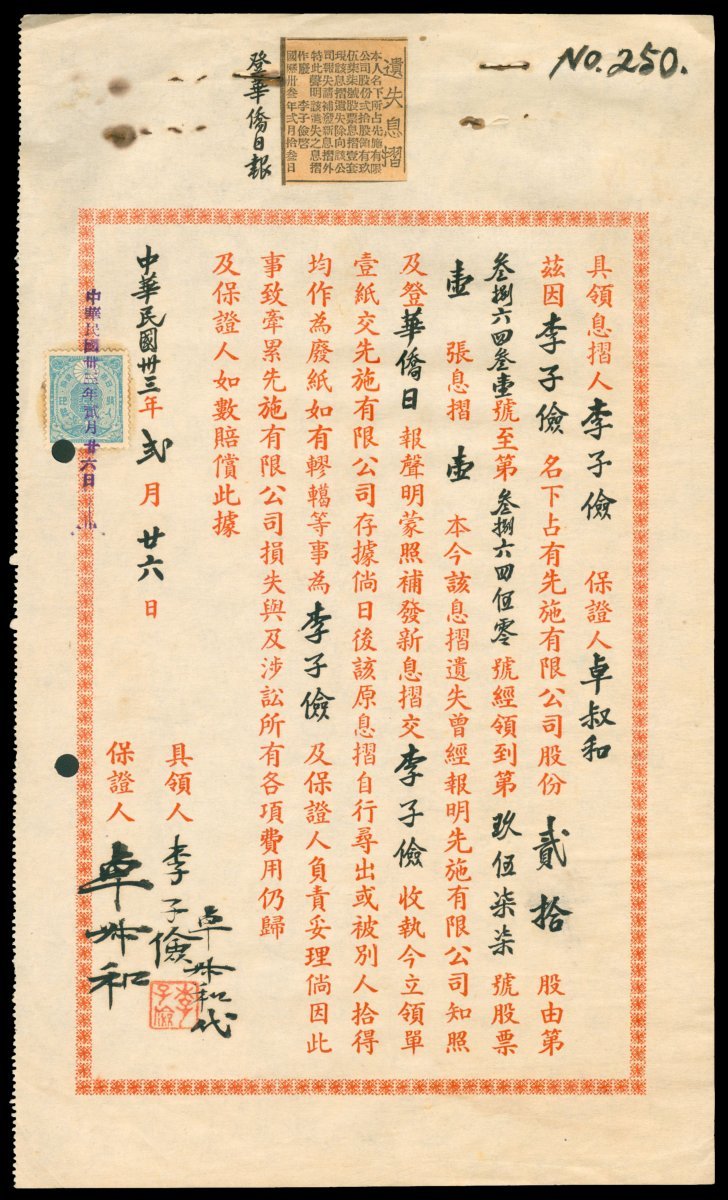 No. 250.
遺失息摺
本人名下所占先施有限
公司股份弍拾股備有玖
伍柒柒號股票息摺壹套
現該息摺遺失除向該公
司報失請補發新息摺外
特此聲明該遺失之息摺
作廢 李子儉啓
國曆卅叁年弍月拾叁日
登華僑日報
具領息摺人李子儉 保證人卓叔和
茲因李子儉名下占有先施有限公司股份貳拾股由第
叁捌六四叁壹號至第叁捌六四伍零號經領到第玖伍柒柒號股票
壹張息摺壹本今該息摺遺失曾經報明先施有限公司知照
及登華僑日報聲明蒙照補發新息摺交李子儉收執今立領單
壹紙交先施有限公司存據倘日後該原息摺自行尋出或被別人拾得
均作為廢紙如有轇轕等事為李子儉及保證人負責妥理倘因此
事致牽累先施有限公司損失與及涉訟所有各項費用仍歸
及保證人如數賠償此據
具領人李子儉
卓叔和代
李子儉
保證人卓叔和
中華民國卅三年弍月廿六日
中華民國卅三年貳月廿六日